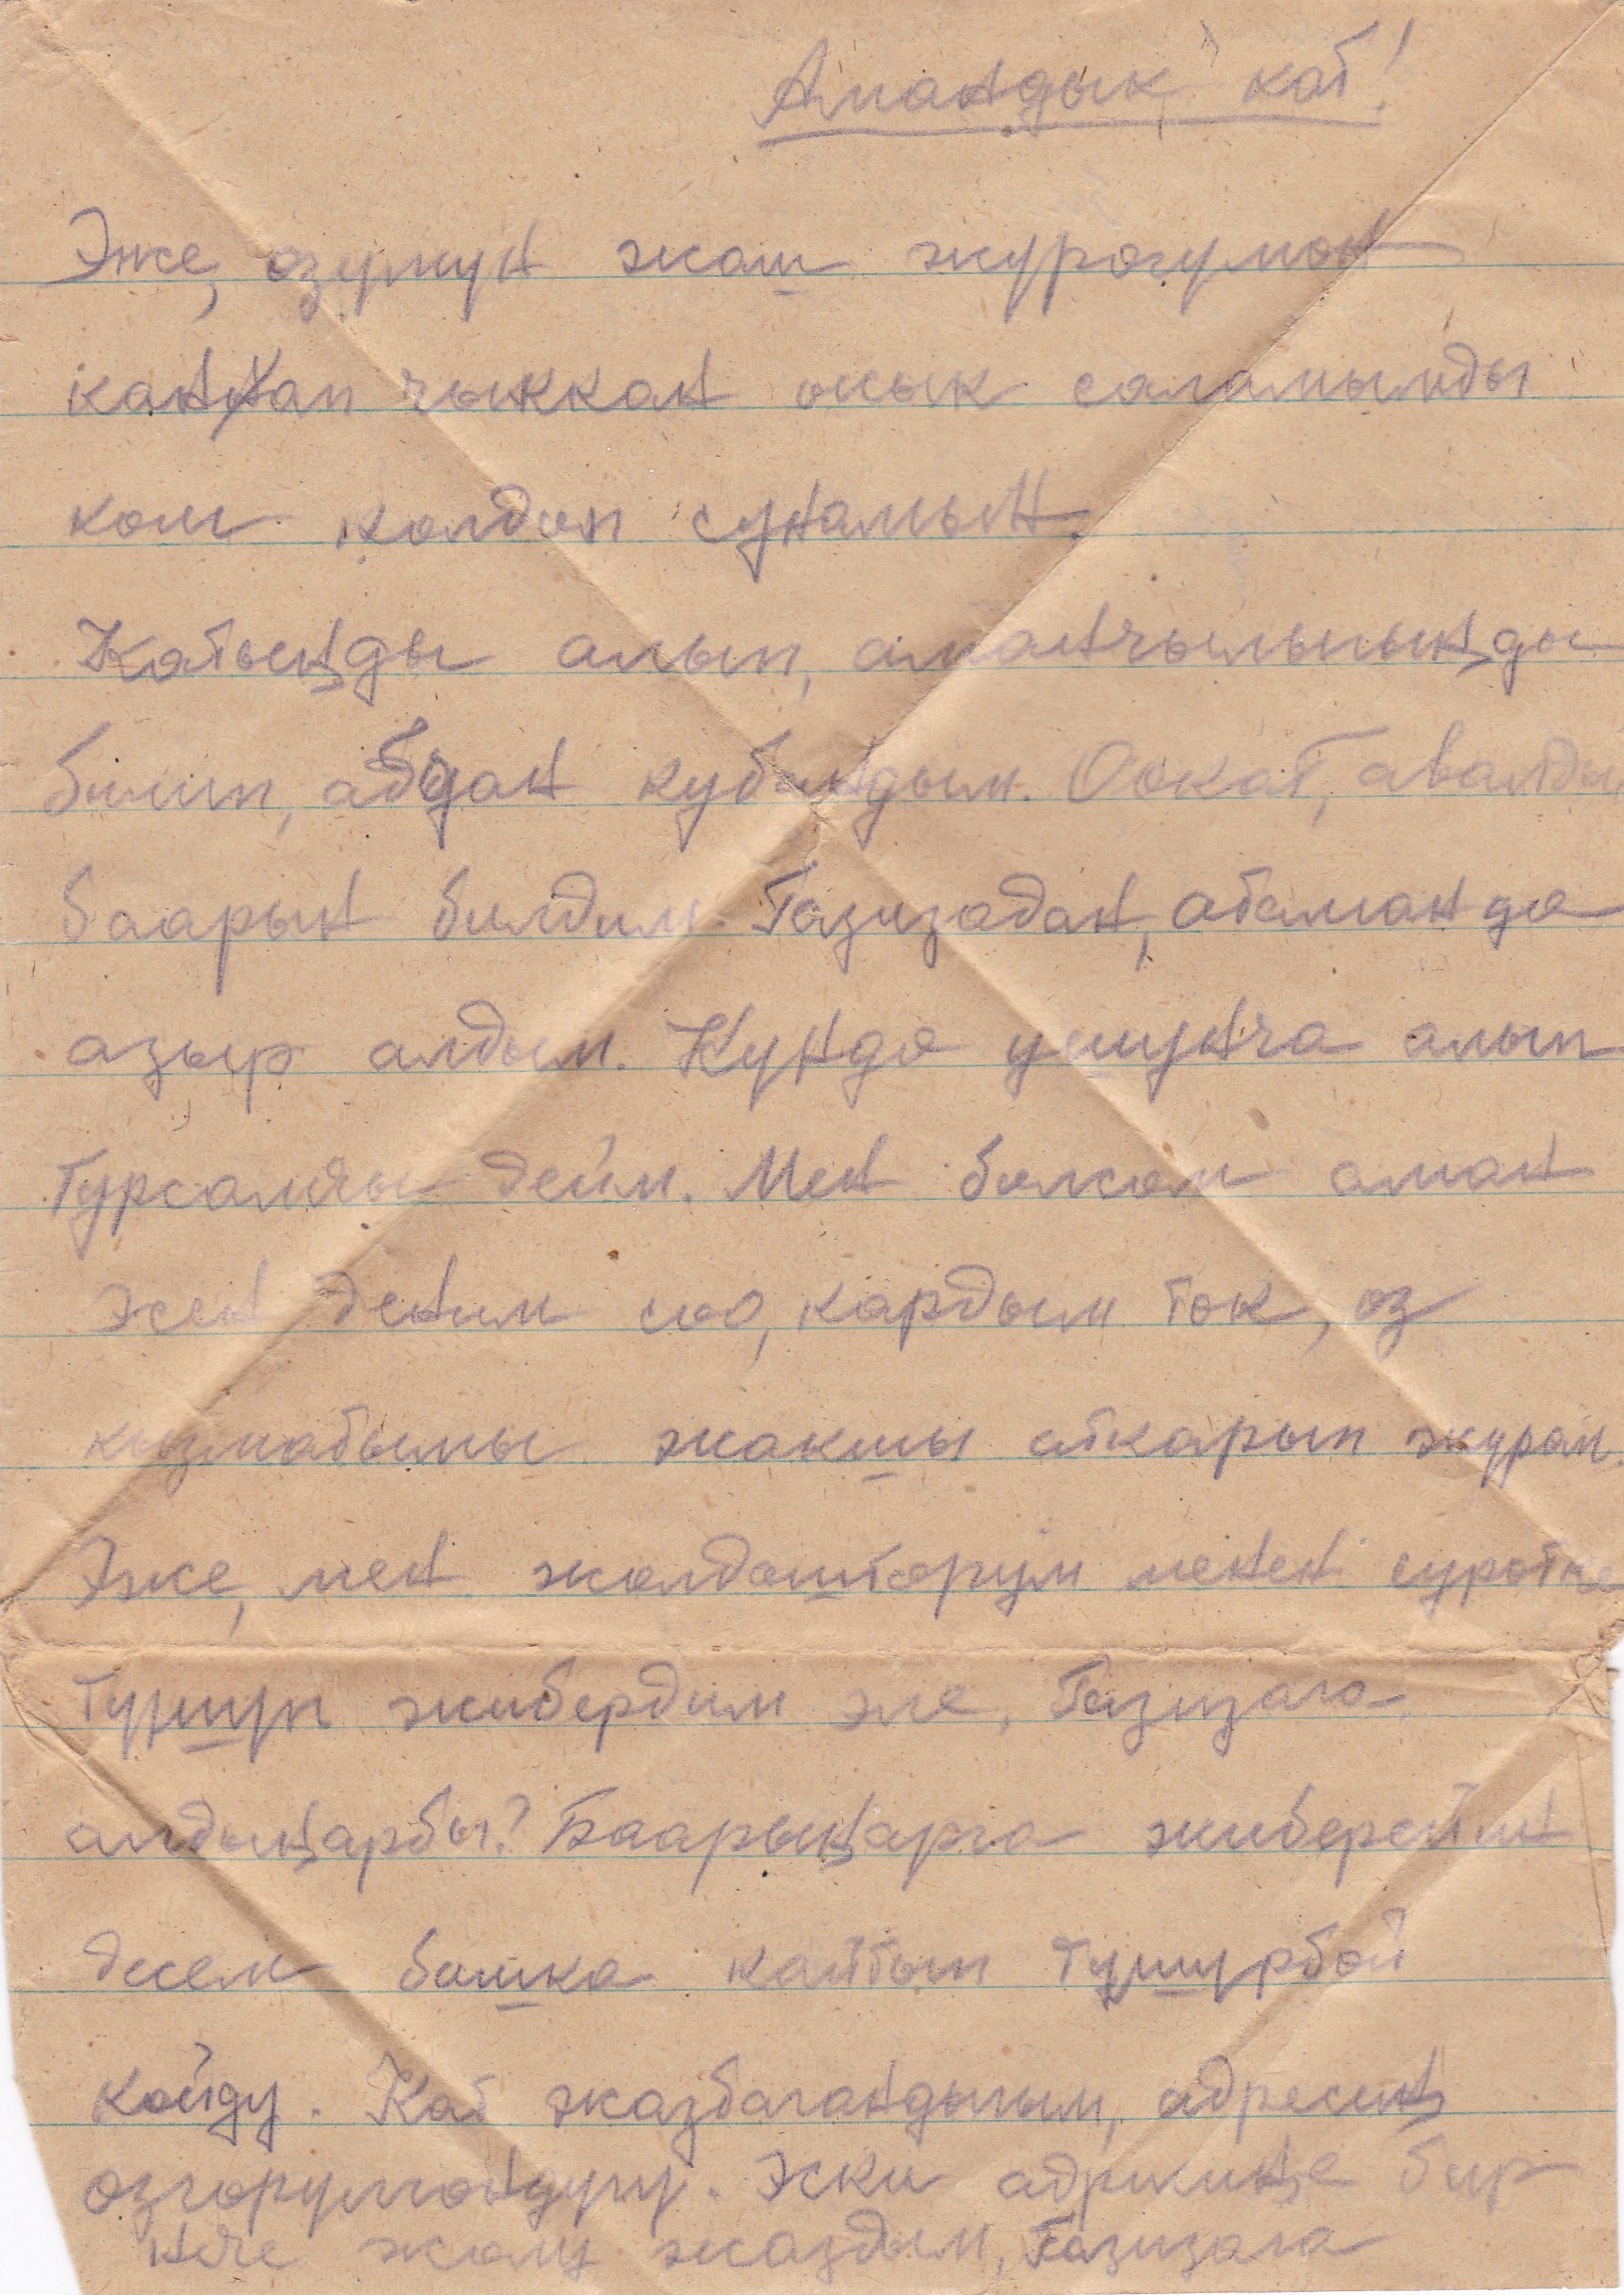 Амандык кат!
Эже, озумун жаш журогумон
канап чыккан ысык саламымды
кош колдоп сунамын.
Катыңды алып, аманчылыгыңды
билип, абдан кубандым. Оокат, авалды
баарын билдим. Газизадан, атаман да
азыр алдым. Кундо ушунча алып
турсамчы дейм. Мен болсом аман
эсен деним соо, кардым ток, оз
кызматымы жакшы аткарып журом.
Эже, мен жолдошторум менен суротко
тушуп жибердим эле, Газизага
алдыңарбы? Баарыңарга жиберейин
десем башка кайтып тушурбой
койду. Кат жазбагандыгым, адресиң
озгорулгондугу. Эски адрисиңе бир
нече жолу жаздым, Газизага